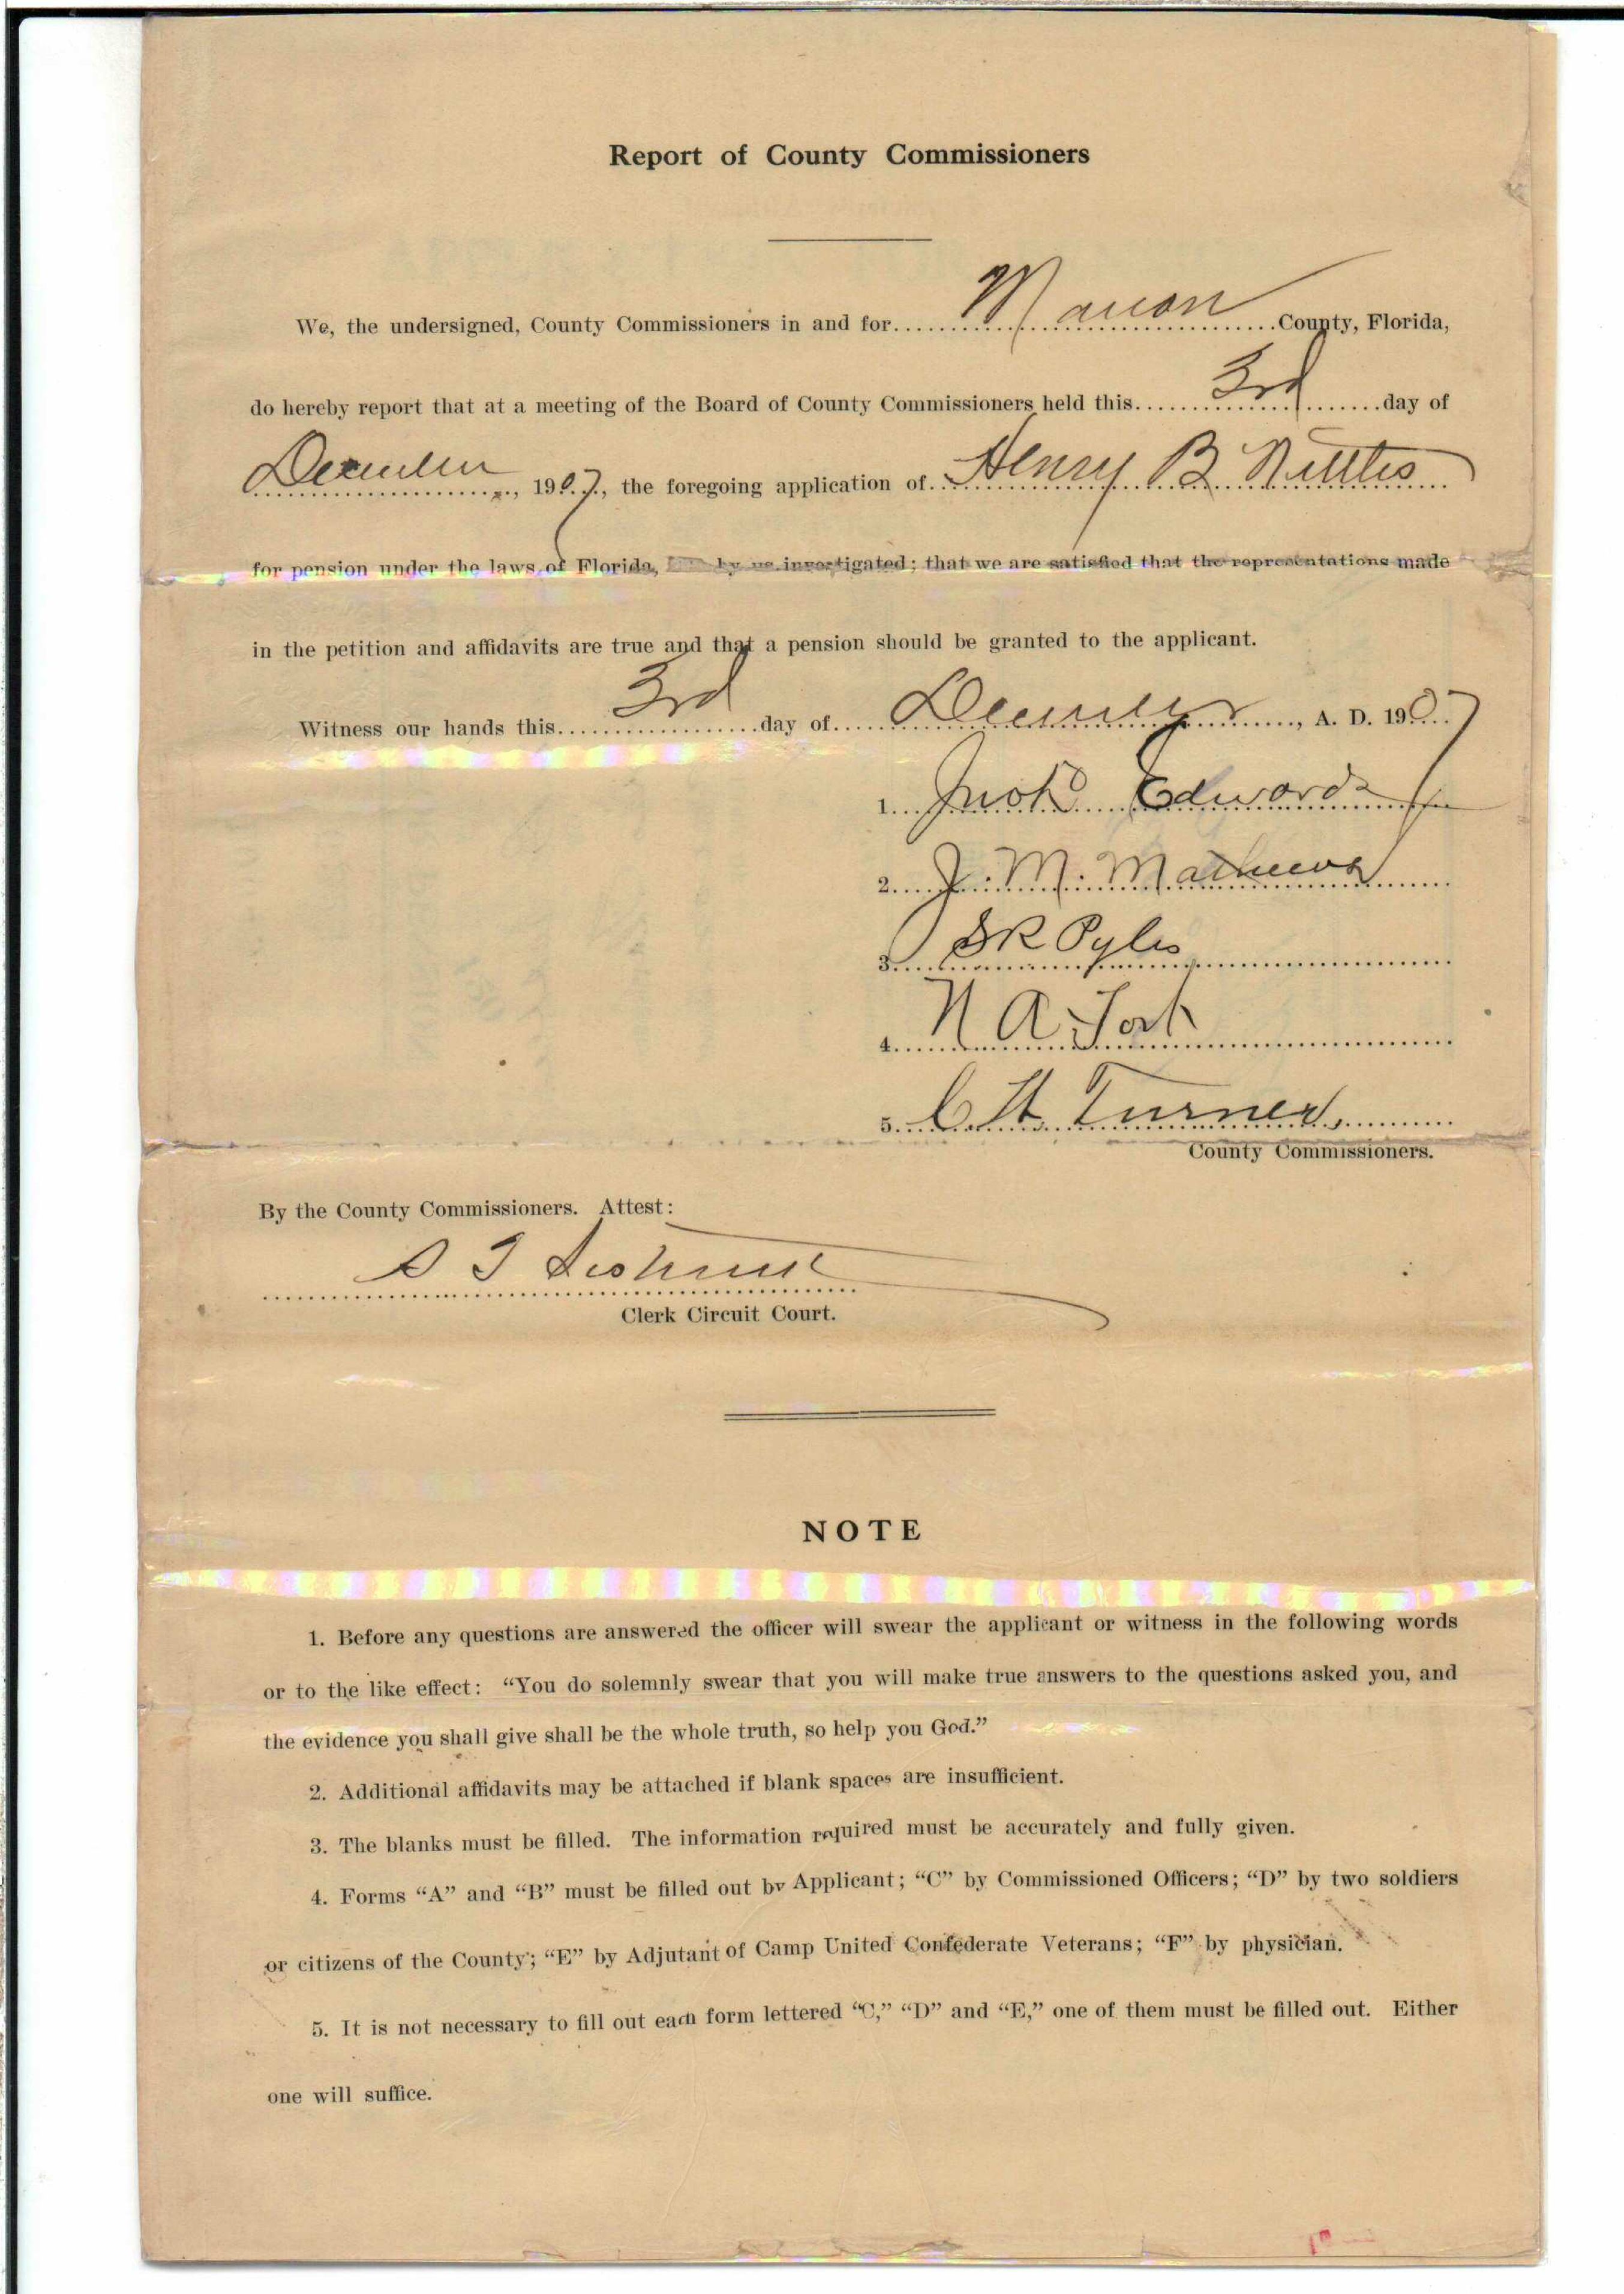 Report of County Commissioners
We, the undersigned, County Commissioners in and for Marion County, Florida,
do hereby report that at a meeting of the Board of County Commissioners held this 3rd day of
December, 1907, the foregoing application of Henry B. Nettles
for pension under the laws of Florida, by us investigated; that we are satisfied that the representations made
in the petition and affidavits are true and that a pension should be granted to the applicant.
Witness our hands this 3rd day of December, A. D. 1907
1. Edwards
2. J. M. Mathews
3. S R Pyles
4. N A Fort
5. C H Turner
County Commissioners.
By the County Commissioners. Attest:
S T Sistrunk
Clerk Circuit Court.
NOTE
1. Before any questions are answered the officer will swear the applicant or witness in the following words
or to the like effect: “You do solemnly swear that you will make true answers to the questions asked you, and
the evidence you shall give shall be the whole truth, so help you God.”
2. Additional affidavits may be attached if blank spaces are insufficient.
3. The blanks must be filled. The information required must be accurately and fully given.
4. Forms “A” and “B” must be filled out by Applicant; “C” by Commissioned Officers; “D” by two soldiers
or citizens of the County; “E” by Adjutant of Camp United Confederate Veterans; “F” by physician.
5. It is not necessary to fill out each form lettered “C,” “D” and “E,” one of them must be filled out. Either
one will suffice.